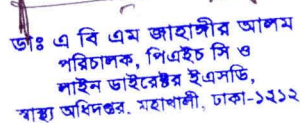 ডাঃ এ বি এম জাহাঙ্গীর আলম
পরিচালক, পিএইচ সি ও
লাইন ডাইরেক্টর ইএসডি,
স্বাস্থ্য অধিদপ্তর, মহাখালী, ঢাকা-১২১২